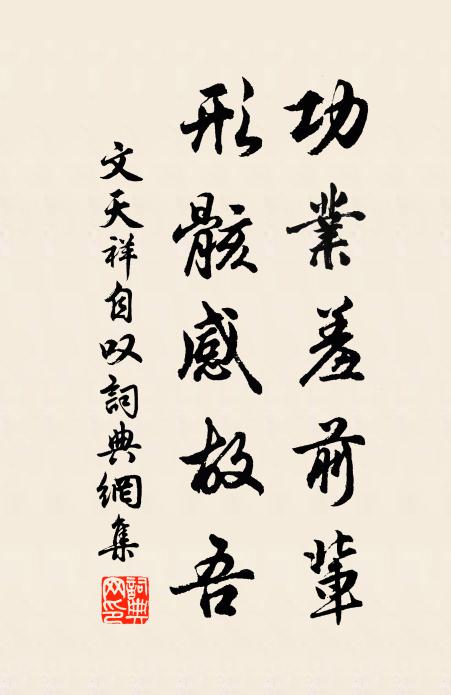 功業羞前輩
形骸感故吾
文天祥自叹詞典網集
詞典網印